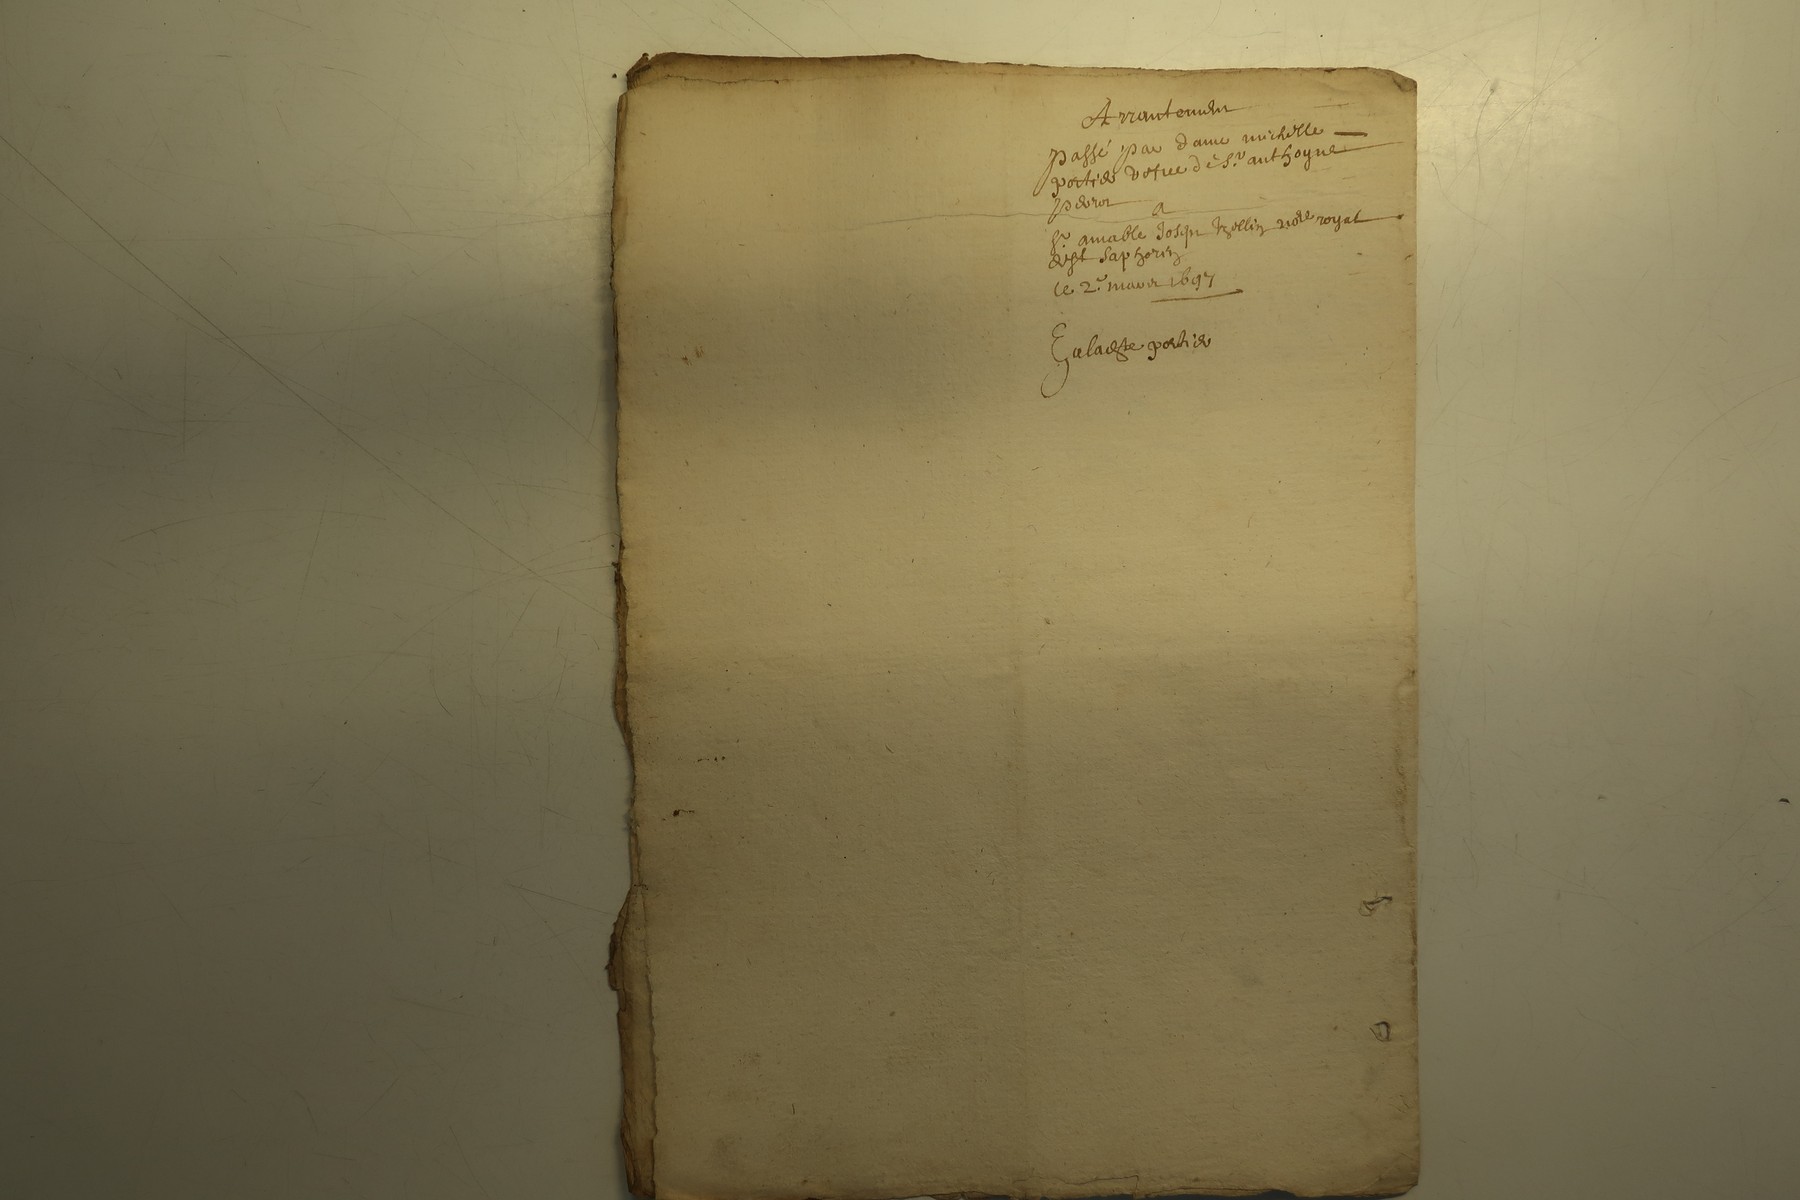 Arrantement
passé par dame michelle
portier vefue de Sr. anthoyne
perrot
a
Sr. amable Joseph Rollin nore royal
de St Saphorin
le 2e. mars 1697
portier